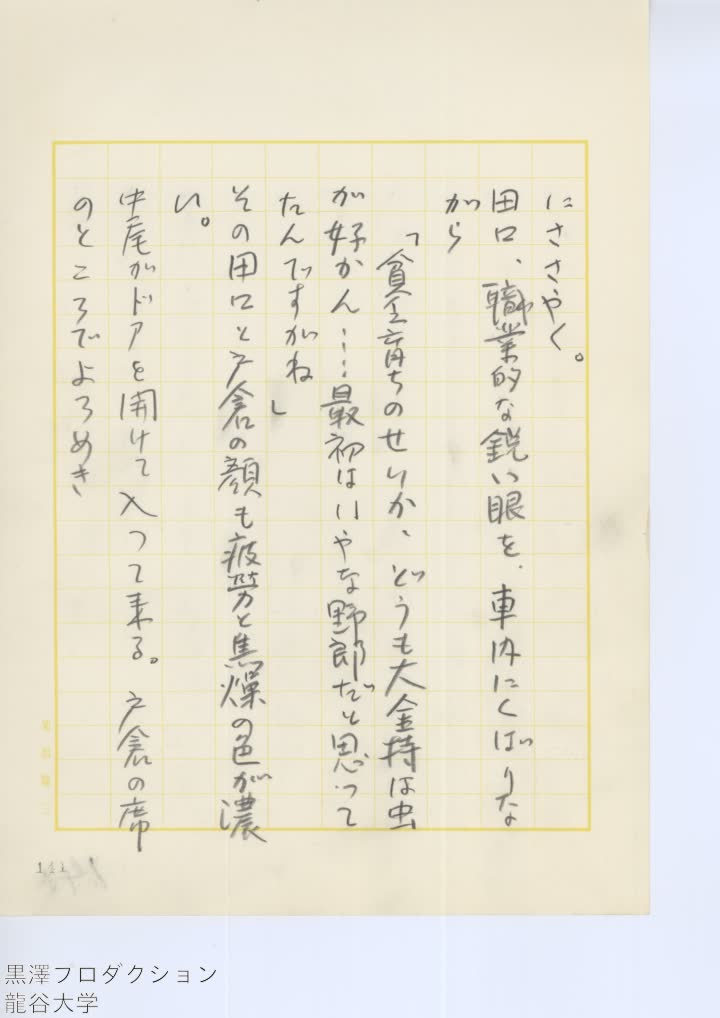 にささやく。
田口、職業的な鋭い眼を、車内にくばりな
がら
「貧乏育ちのせいか、どうも大金持は虫
が好かん……最初はいやな野郎だと思って
たんですがね」
その田口と戸倉の顔も疲労と焦燥の色が濃
い。
中尾がドアを開けて入って来る。戸倉の席
のところでよろめき
111
黒澤プロダクション
龍谷大学